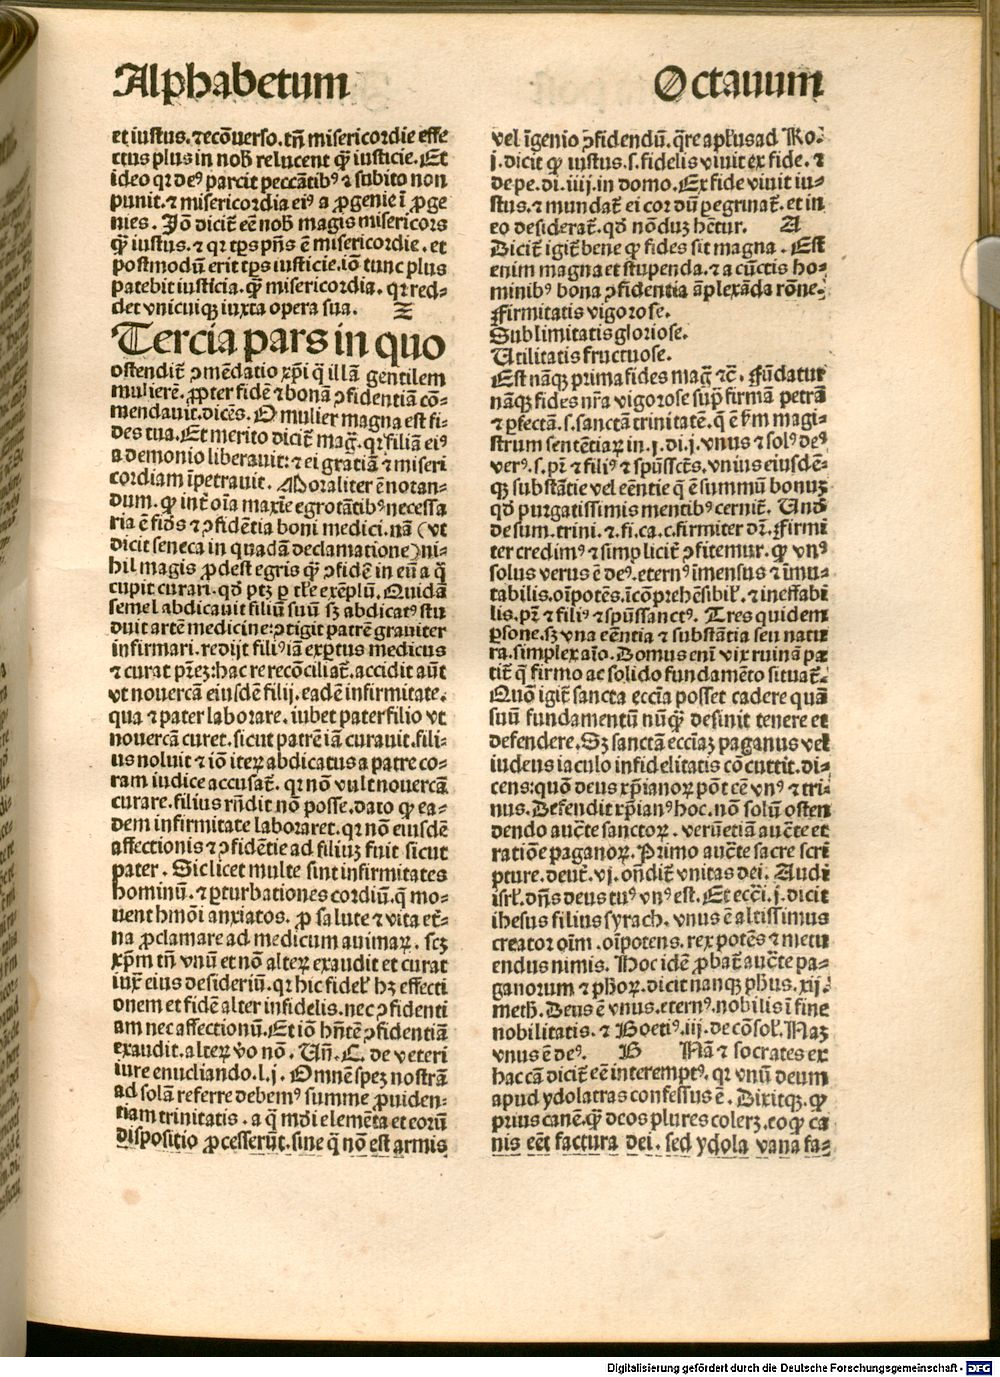 Alphabetum
Octauum
et iustus. ⁊ecōuerso. tn̄ misericordie effe
ctus plus in nob̄ relucent qͣ̄ iusticie. Et
ideo qꝛ deꝰ parcit peccātibꝰ ⁊ subito non
punit. ⁊ misericordia eiꝰ a ꝓgenie ī ꝓge
nies. Jō dicit̄ eē nob̄ magis misericors
qͣ̄ iustus. ⁊ qꝛ tp̄s pn̄s ē misericordie. et
postmodū erit tp̄s iusticie. iō tunc plus
patebit iusticia. qͣ̄ misericordia. qꝛ red⸗
det vnicuiqꝫ iuxta opera sua. Z
Tercia pars in quo
ostendit̄ ꝯmēdatio xp̄i q̄ illā gentilem
mulierē. ꝓpter fidē ⁊ bonā ꝯfidentiā cō⸗
mendauit. dicēs. O mulier magna est fi⸗
des tua. Et merito dicit̄ maḡ. qꝛ filiā eiꝰ
a demonio liberauit: ⁊ ei gratiā ⁊ miseri
cordiam īpetrauit. Moraliter ē notan⸗
dum. ꝙ int̄ oīa maxīe egrotātibꝰ necessa
ria ē fiđs ⁊ ꝯfidētia boni medici. nā (vt
dicit seneca in quadā declamatione) ni⸗
hil magis ꝓdest egris qͣ̄ ꝯfidē in eū a q̄
cupit curari. qđ ptꝫ ꝑ tl̄e exēplū. Quidā
semel abdicauit filiū suū sꝫ abdicatꝰ stu
duit artē medicine: ꝯtigit patrē grauiter
infirmari. redijt filiꝰ iā exꝑtus medicus
⁊ curat pr̄eꝫ: hac re recōciliat̄. accidit aūt
vt nouercā eiusdē filij. eadē infirmitate.
qua ⁊ pater laborare. iubet pater filio vt
nouercā curet. sicut patrē iā curauit. fili⸗
us noluit ⁊ iō iteꝝ abdicatus a patre co⸗
ram iudice accusat̄. qꝛ nō vult nouercā
curare. filius rn̄dit nō posse. dato ꝙ ea⸗
dem infirmitate laboraret. qꝛ nō eiusdē
affectionis ⁊ ꝯfidētie ad filiuꝫ fuit sicut
pater. Sic licet multe sint infirmitates
hominū. ⁊ ꝑturbationes cordiū. q̄ mo⸗
uent hm̄oi anxiatos. ꝓ salute ⁊ vita et̄⸗
na ꝓclamare ad medicum animaꝝ. scꝫ
xp̄m tn̄ vnū et nō alteꝝ exaudit et curat
iux̄ eius desideriū. qꝛ hic fidel̄ hꝫ effecti
onem et fidē alter infidelis. nec ꝯfidenti
am nec affectionū. Et iō hn̄tē ꝯfidentiā
exaudit. alteꝝ v̄o nō. Un̄. C. de veteri
iure enucliando. l. j. Omnē speꝫ nostrā
ad solā referre debemꝰ summe ꝓuiden⸗
tiam trinitatis. a q̄ mūdi elemēta et eorū
dispositio ꝓcesserūt. sine q̄ nō est armis
vel īgenio ꝯfidendū. q̄re apl̄us ad Ro.
j. dicit ꝙ iustus. s. fidelis viuit ex fide. ⁊
de pe. di. iiij. in domo. Ex fide viuit iu⸗
stus. ⁊ mundat̄ ei cor dū ꝑegrinat̄. et in
eo desiderat̄. qđ nōduꝫ hētur. A
Dicit̄ igit̄ bene ꝙ fides sit magna. Est
enim magna et stupenda. ⁊ a cūctis ho⸗
minibꝰ bona ꝯfidentia āplexāda rōne.
Firmitatis vigorose.
Sublimitatis gloriose.
Utilitatis fructuose.
Est nāqꝫ prima fides maḡ ⁊c̄. Fūdatur
nāqꝫ fides nr̄a vigorose sup̄ firmā petrā
⁊ ꝑfectā. s. sanctā trinitatē. q̄ ē ẜm magi⸗
strum sentētiaꝝ in. j. di. j. vnus ⁊ solꝰ deꝰ
verꝰ. s. pr̄ ⁊ filiꝰ ⁊ spūssctēs. vnius eiusdē⸗
qꝫ substātie vel eēntie q̄ ē summū bonuꝫ
qđ purgatissimis mentibꝰ cernit̄. Unđ
de sum. trini. ⁊. fi. ca. c. firmiter dr̄. Firmi
ter credimꝰ ⁊ simplicit̄ ꝯfitemur. ꝙ vnꝰ
solus verus ē deꝰ. eternꝰ īmensus ⁊ īmu⸗
tabilis. oīpotēs. īcōprehēsibil̄. ⁊ ineffabi
lis. pr̄ ⁊ filiꝰ ⁊ spūssanctꝰ. Tres quidem
ꝑsone. sꝫ vna eēntia ⁊ substātia seu natu
ra. simplex aīo. Domus enī vix ruinā pa
tit̄ q̄ firmo ac solido fundamēto situat̄.
Quō igit̄ sancta eccīa posset cadere quā
suū fundamentū nūqͣ̄ desinit tenere et
defendere. Sꝫ sanctā eccīaꝫ paganus vel
iudeus iaculo infidelitatis cōcuttit. di⸗
cens: quō deus xp̄ianoꝝ pōt eē vnꝰ ⁊ tri⸗
nus. Defendit xp̄ianꝰ hoc. nō solū osten
dendo auct̄e sanctoꝝ. verūetiā auct̄e et
ratiōe paganoꝝ. Primo auct̄e sacre scri
pture. deut̄. vj. on̄dit̄ vnitas dei. Audi
isrl̄. dn̄s deus tuꝰ vnꝰ est. Et ecc̄i. j. dicit
ihesus filius syrach. vnus ē altissimus
creator oīm. oīpotens. rex potēs ⁊ metu
endus nimis. Hoc idē ꝓbat̄ auct̄e pa⸗
ganorum ⁊ ph̄oꝝ. dicit nanqꝫ ph̄us. xij.
meth. Deus ē vnus. eternꝰ. nobilis ī fine
nobilitatis. ⁊ Boetiꝰ. iij. de cōsol̄. Naꝫ
vnus ē deꝰ. B Nā ⁊ socrates ex
hac cā dicit̄ eē interemptꝰ. qꝛ vnū deum
apud ydolatras confessus ē. Dixitqꝫ. ꝙ
prius canē. qͣ̄ deos plures colerꝫ. eo ꝙ ca
nis eēt factura dei. sed ydola vana fa⸗
Digitalisierung gefördert durch die Deutsche Forschungsgemeinschaft - DFG